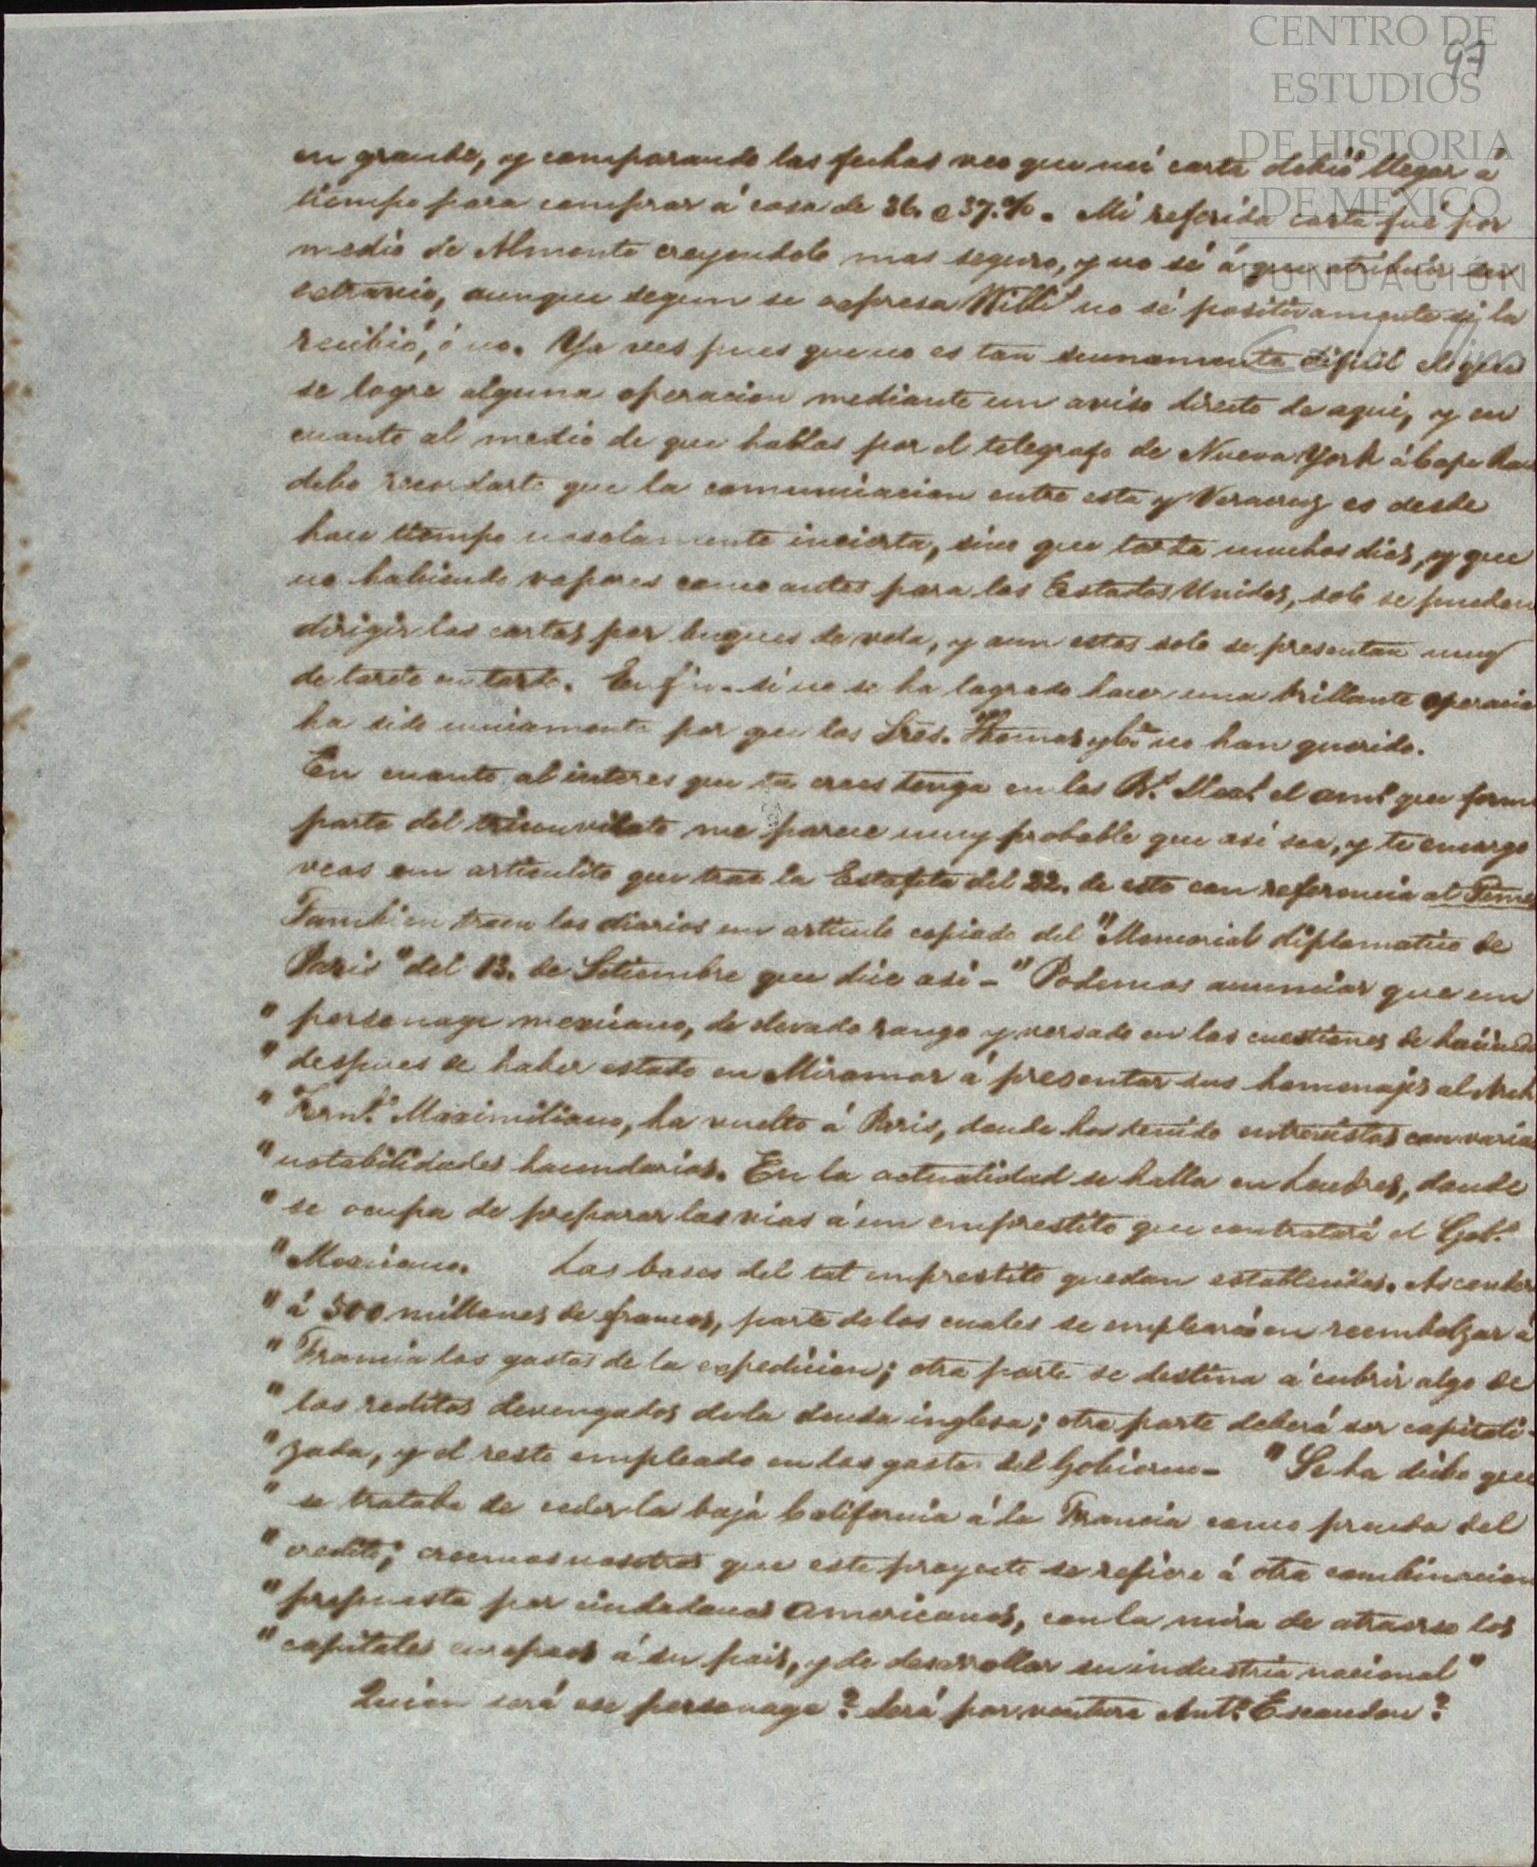 CENTRO DE
ESTUDIOS
DE HISTORIA
DE MÉXICO
FUNDACIÓN
97
en grande, y comparando las fechas veo que mi carta debió llegar á
tiempo para comprar á cosa de 36. @ 37.%. Mi referida carta fué por
medio de Almonte creyendolo mas seguro, y no sé á que atribuir su
extravio, aunque segun se espresa no sé positivamente si la
recibió, ó no. Ya ves pues que no es tan sumamente dificil el que
se logre alguna operacion mediante un aviso directo de aqui, y en
cuanto al medio de que hablas por el telegrafo de Nueva York á Cape Rac
debo recordarte que la comunicacion entre esta y Veracruz es desde
hace tiempo no solamente incierta, sino que tarda muchos dias, y que
no habiendo vapores como antes para los Estados Unidos, solo se pueden
dirigir las cartas por buques de vela, y aun estos solo se presentan muy
de tarde en tarde. En fin. si no se ha logrado hacer una brillante operacio
ha sido unicamente por que los Sres. Thomas y Cª no han querido.
En cuanto al interes que tu crees tenga en los Bs. el que form
parte del triunvirato me parece muy probable que asi sea, y te encargo
veas un articulito que trae la Estafeta del 22. de este con referencia al
Tambien traen los diarios un articulo copiado del "Memorial diplomatico de
Paris" del 13. de Setiembre que dice asi - "Podemos anunciar que un
" personage mexicano, de elevado rango y versado en las cuestiones de hacienda
" despues de haber estado en Miramar á presentar sus homenajes al Arch
" Fernº. Maximiliano, ha vuelto á Paris, donde ha tenido entrevistas con varias
" notabilidades hacendarias. En la actualidad se halla en Londres, donde
" se ocupa de preparar las vias á un emprestito que contratará el Gobº.
" Mexicano. Las bases del tal emprestito quedan establecidas. Ascender
" á 500 millones de francos, parte de los cuales se emplearán en reembolzar á
" Francia los gastos de la expedicion; otra parte se destina á cubrir algo de
" los reditos devengados de la deuda inglesa; otra parte deberá ser capitali-
" zada, y el resto empleado en los gastos del Gobierno - "Se ha dicho que
" se trataba de ceder la baja California á la Francia como prenda del
" credito; creemos nosotros que este proyecto se refiere á otra combinacion
" propuesta por ciudadanos Americanos, con la mira de atraerse los
" capitales europeos á su pais, y de desarrollar su industria nacional"
Quien será ese personage? Será por ventura Antº. Escandon?